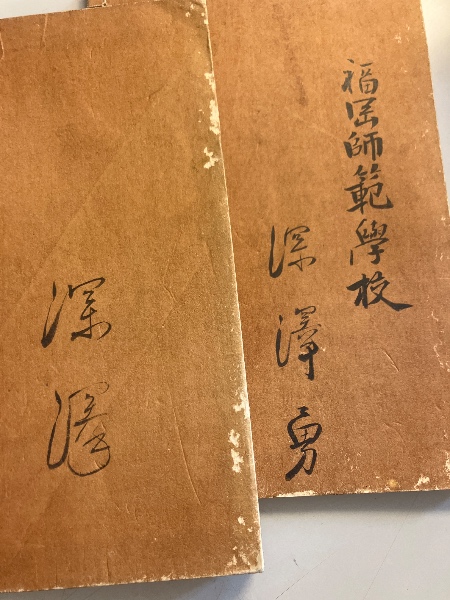 福岡師範學校
深澤勇
深澤